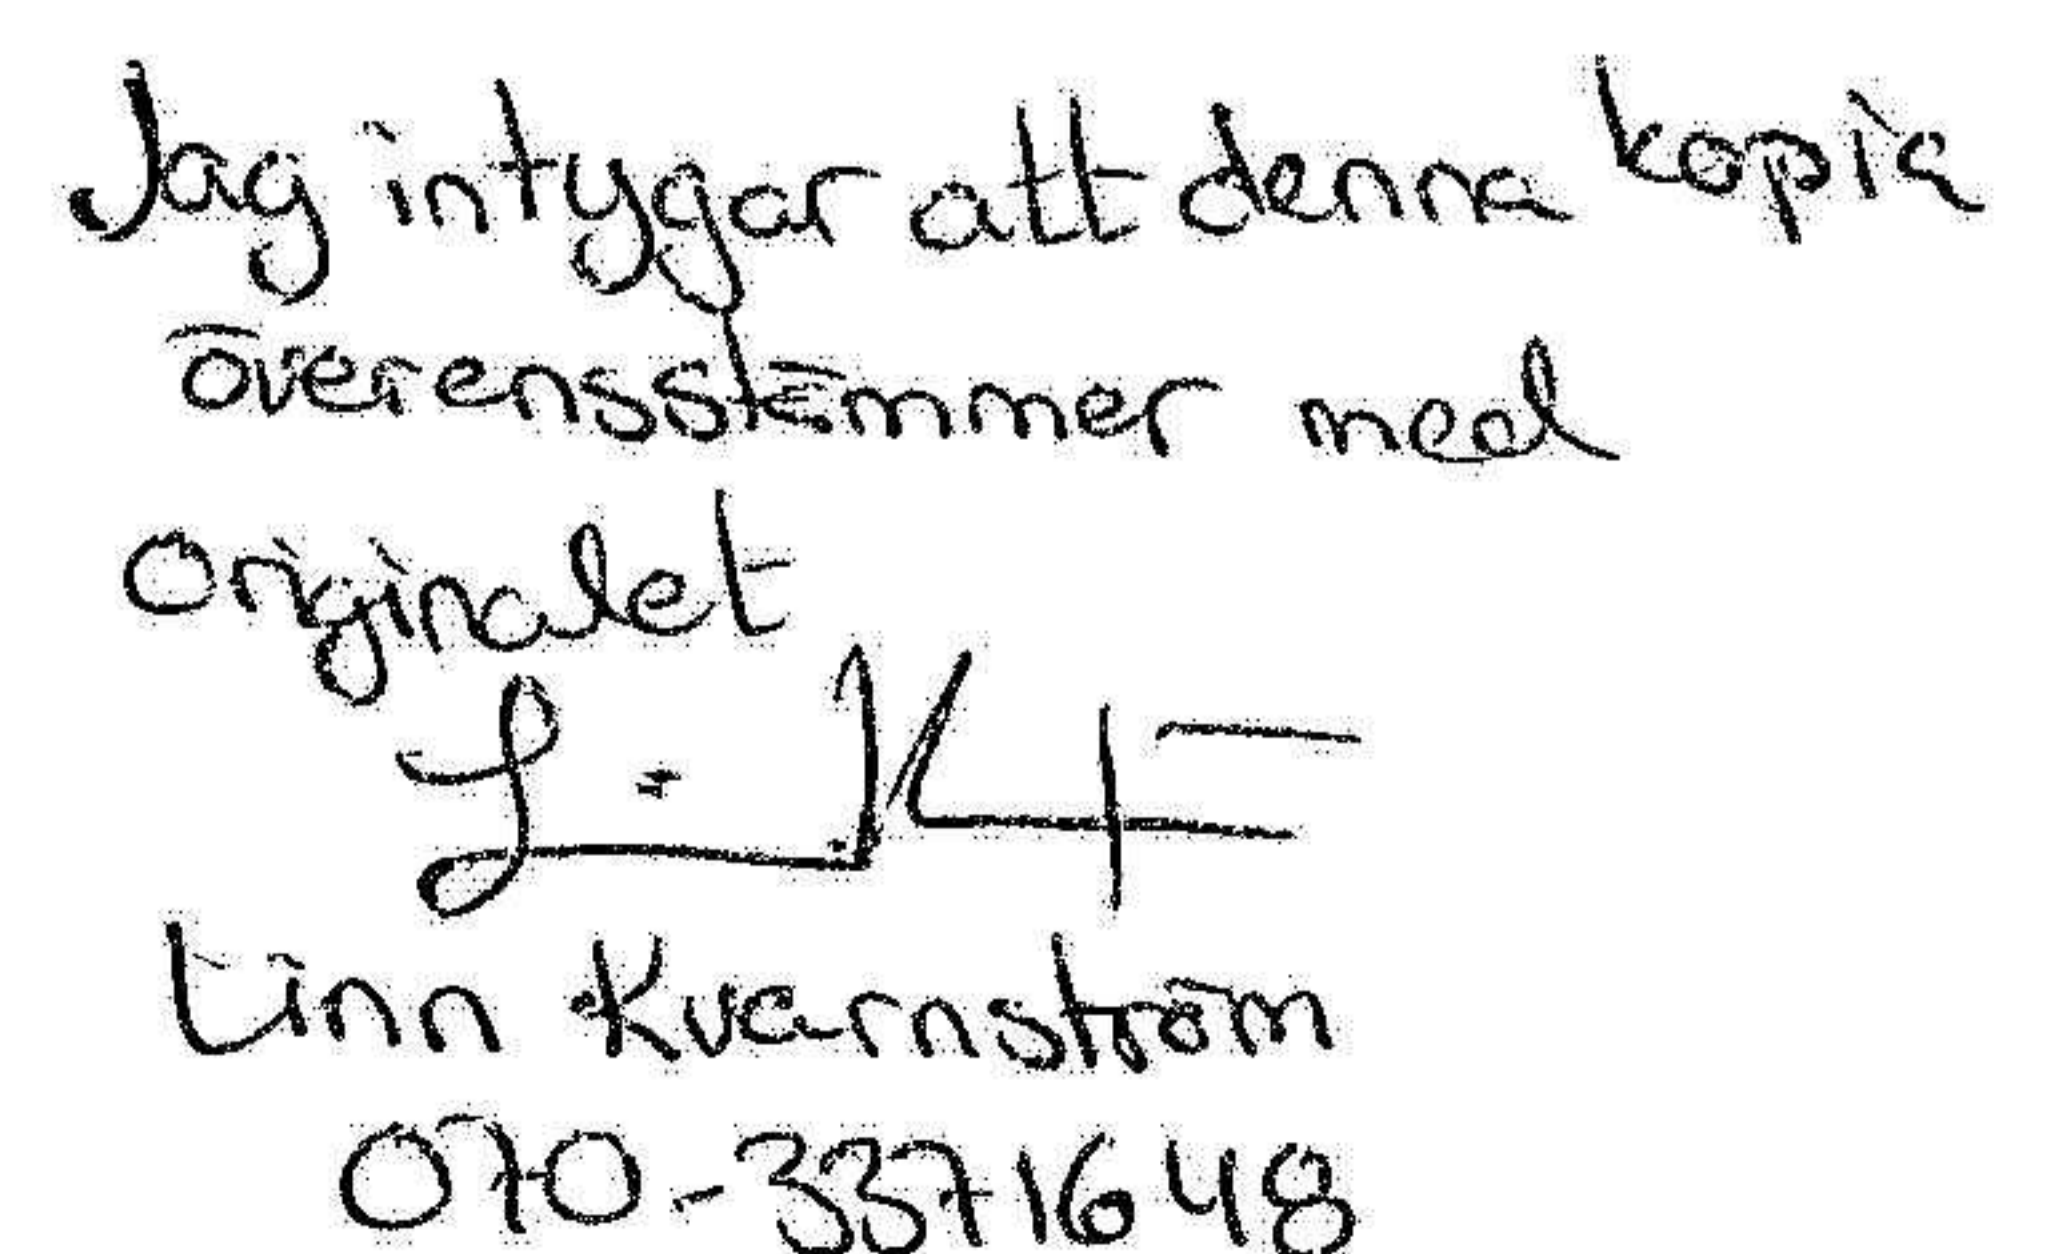 Jag intygar att denna kopia
överensstämmer med
originalet
Linn Kvarnström
070-3371648